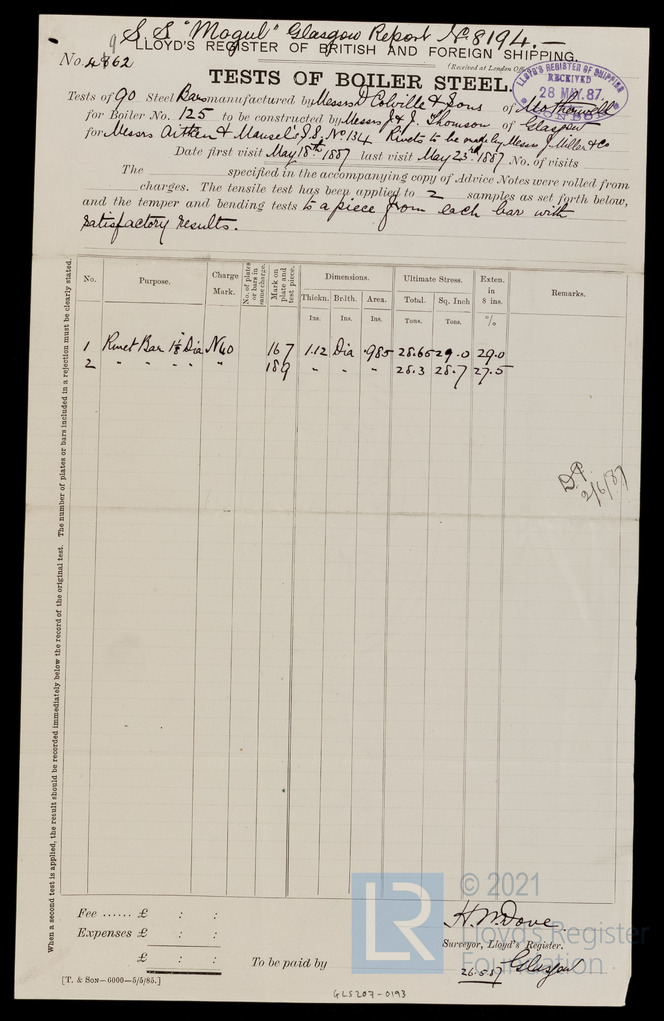 S.S "Mogul" Glasgow Report No 8194.—
LLOYD'S REGISTER OF BRITISH AND FOREIGN SHIPPING.
No. 4862
(Received at London Office
LLOYD'S REGISTER OF SHIPPING
RECEIVED
28 MAY. 87
LONDON
TESTS OF BOILER STEEL.
Tests of 90 Steel Bars manufactured by Messrs D Colville & Sons of Motherwell
for Boiler No. 125 to be constructed by Messrs J & J. Thomson of Glasgow
for Messrs Aitken & Mansel's S.S. No 134 Rivets to be made by Messrs J Miller & Co
Date first visit May 18th 1887 last visit May 23rd 1887 No. of visits
The specified in the accompanying copy of Advice Notes were rolled from
charges. The tensile test has been applied to 2 samples as set forth below,
and the temper and bending tests to a piece from each bar with
satisfactory results.
No. Purpose. Charge Mark. No. of plates or bars in same charge. Mark on plate and test piece. Dimensions. Ultimate Stress. Exten. in 8 ins. Remarks.
Thickn. Br.lth. Area. Total. Sq. Inch
Ins. Ins. Ins. Tons. Tons. %
1 Rivet Bar 1 1/8" Dia N40 167 1.12 Dia .985 28.65 29.0 29.0
2 " " " " " 189 " " " 28.3 28.7 27.5
D.P.
2/6/87
When a second test is applied, the result should be recorded immediately below the record of the original test. The number of plates or bars included in a rejection must be clearly stated.
Fee ...... £ : :
Expenses £ : :
£ : :
To be paid by
H. W. Dove.
Surveyor, Lloyd's Register.
26.5.87 Glasgow
[T. & SON—6000—5/5/85.]
GLS207-0193
LR
© 2021
Lloyd's Register
Foundation